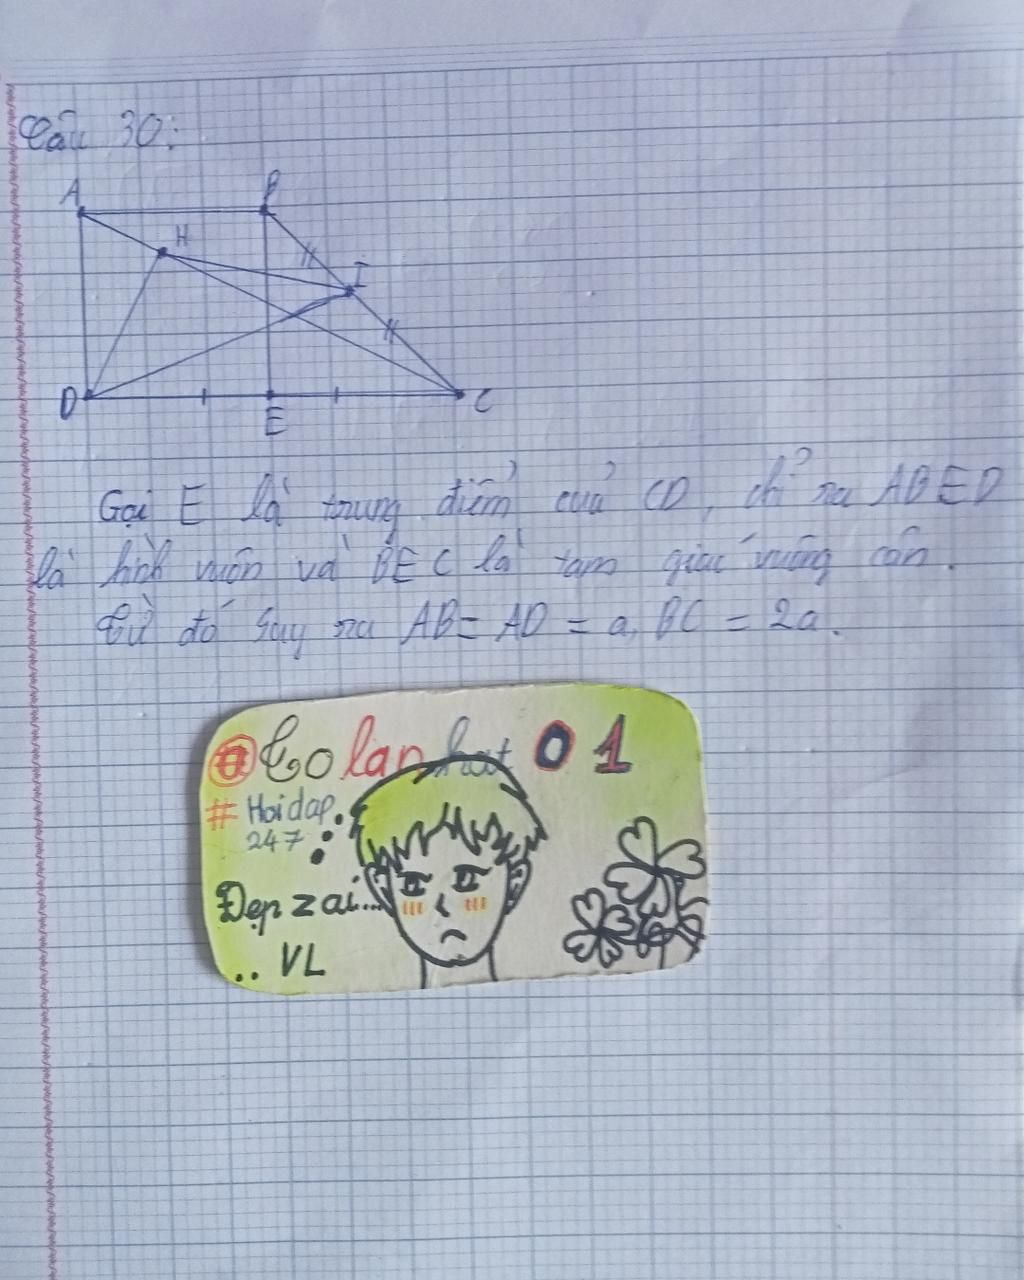 Câu 30:
A B
H
I
D E C
Gọi E là trung điểm của CD, chỉ ra ABED
là hình vuôn và BEC là tam giác vuông cân.
Từ đó suy ra AB = AD = a, BC = 2a.
@ To lan hat 01
# Hoidap
247
Đẹp zai...
.. VL